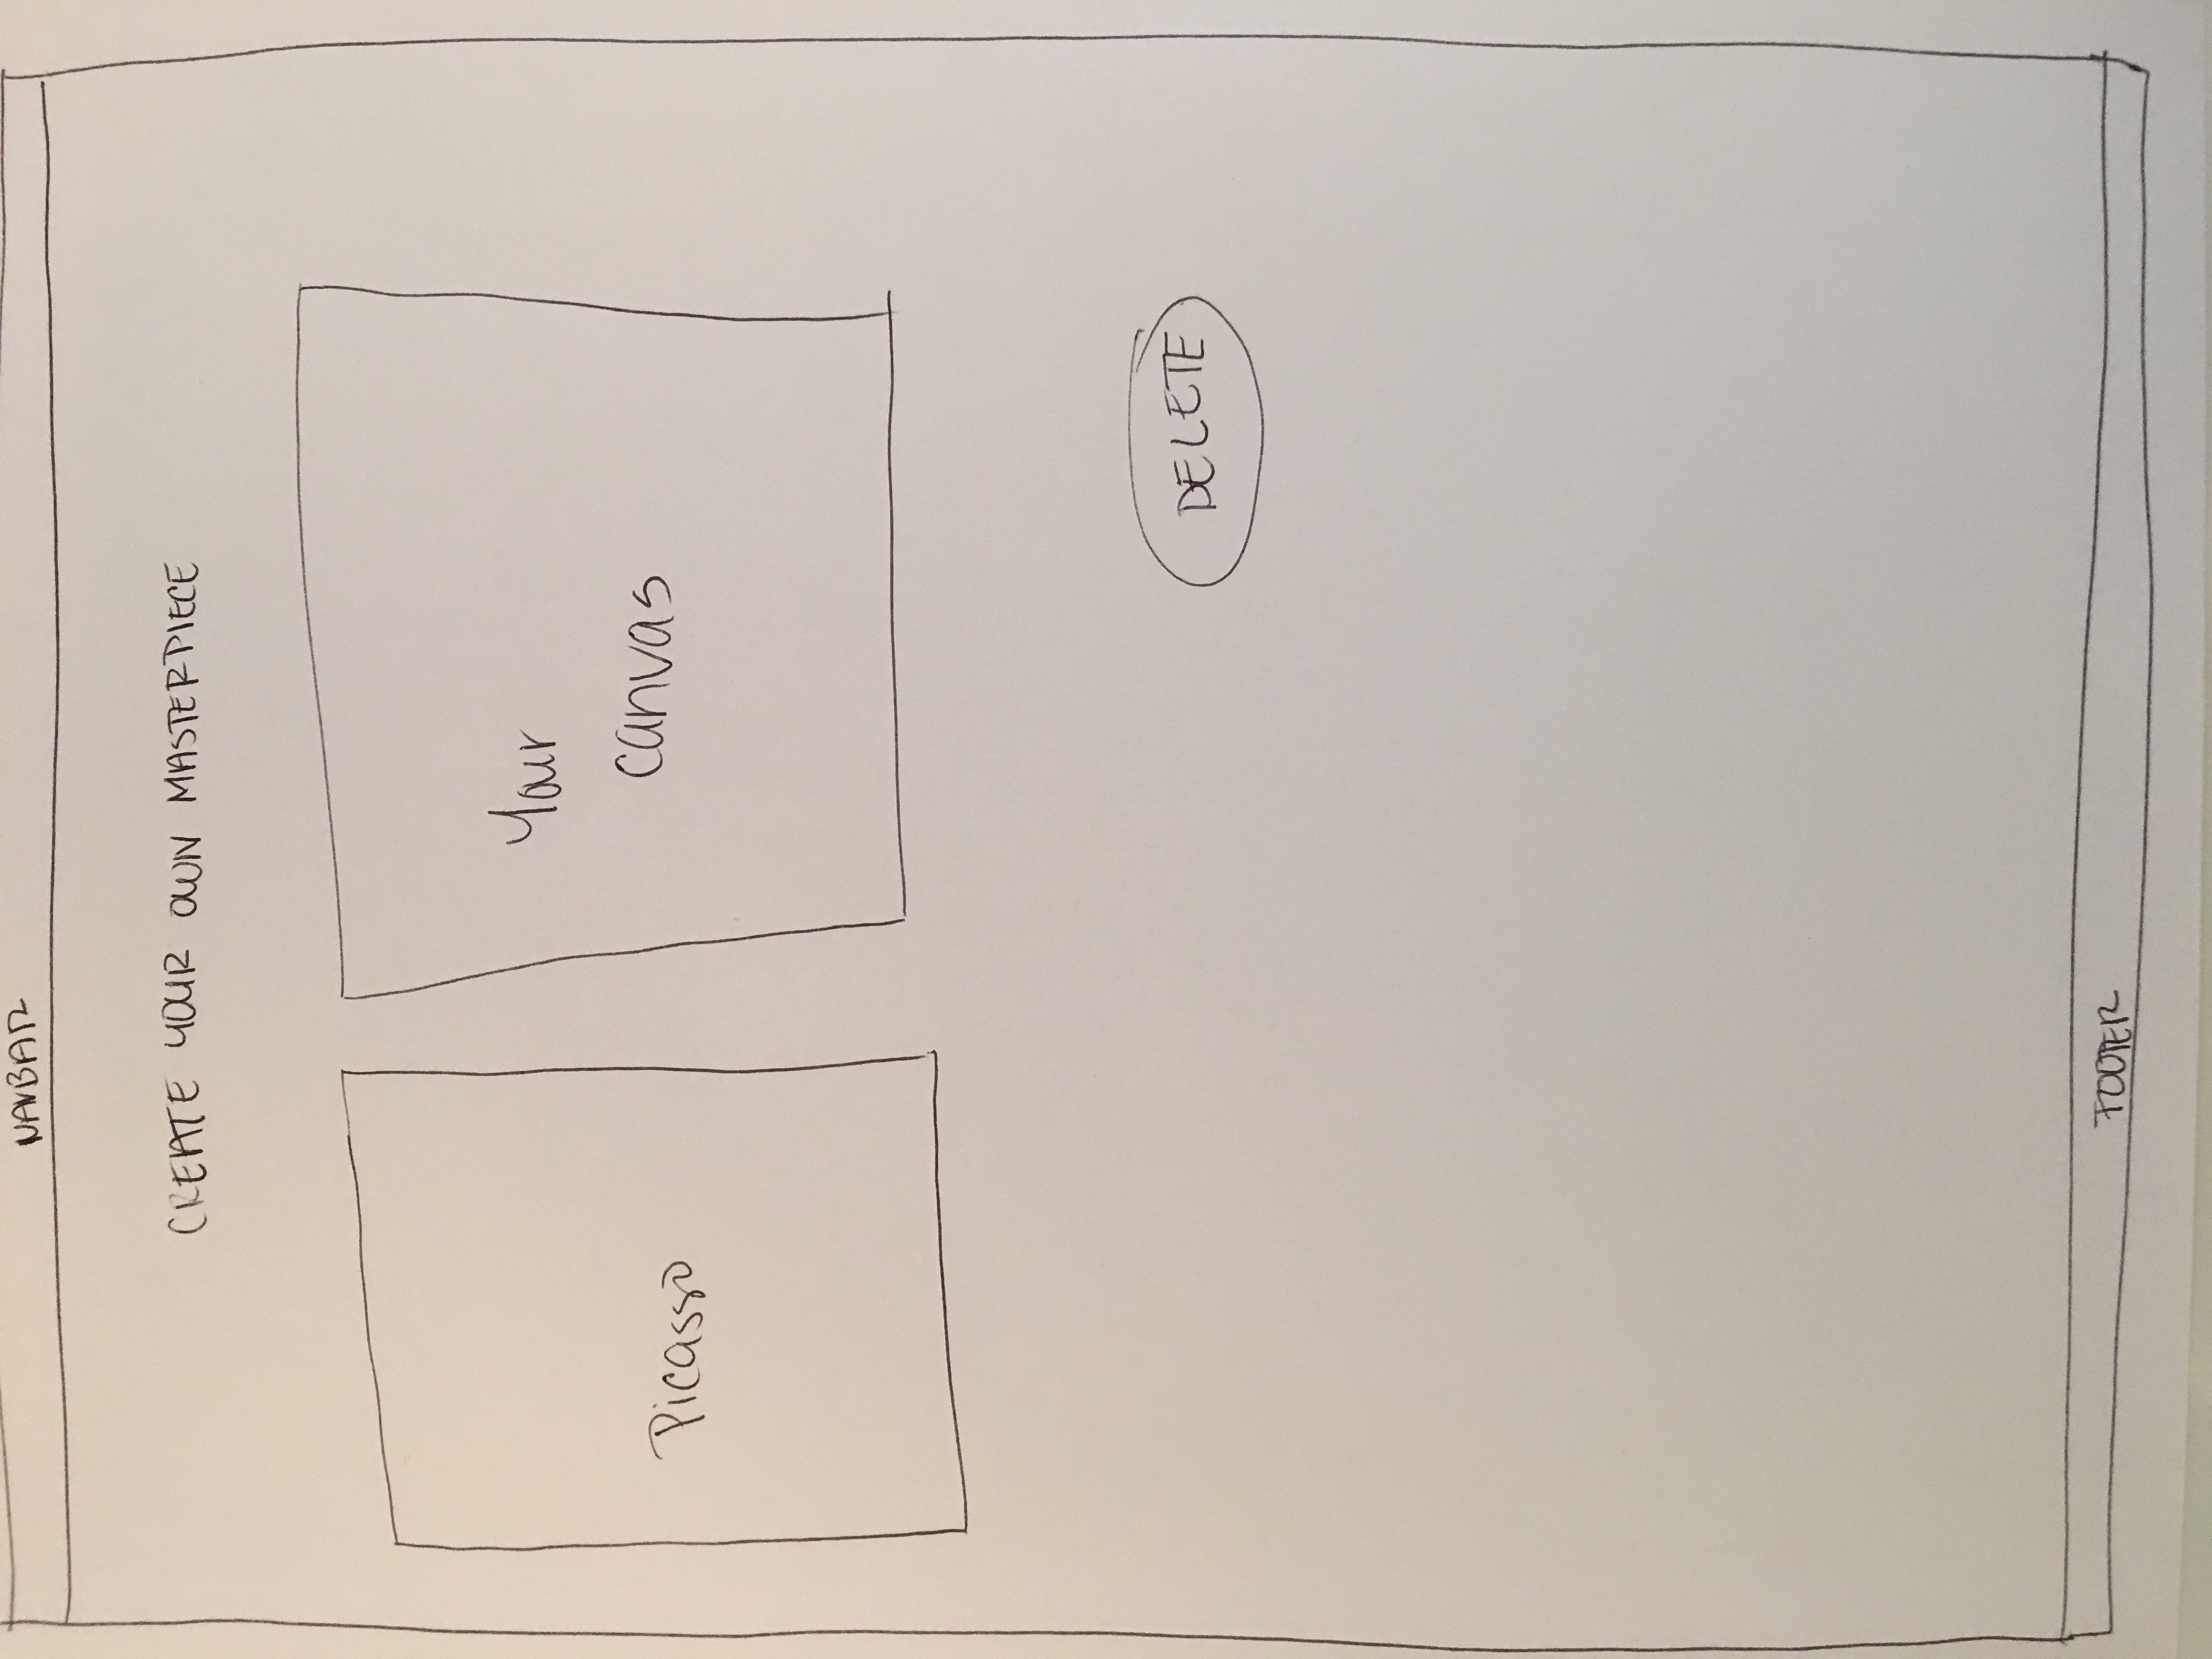 NAVBAR
CREATE YOUR OWN MASTERPIECE
Picasso
Your
canvas
DELETE
FOOTER